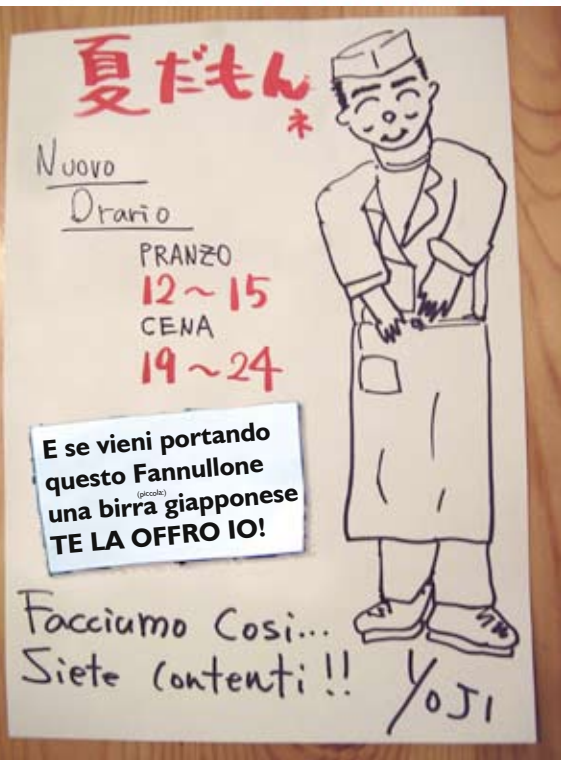 夏だもん
ネ
Nuovo
Orario
PRANZO
12～15
CENA
19～24
E se vieni portando
questo Fannullone
(piccola:)
una birra giapponese
TE LA OFFRO IO!
Facciumo Cosi...
Siete Contenti!!
YOJI